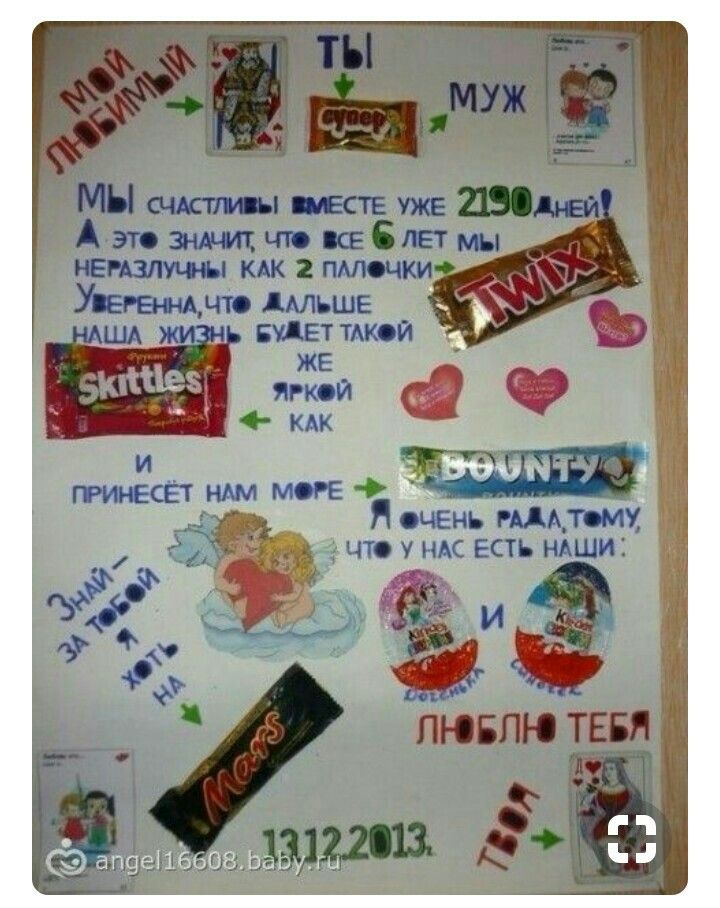 МОЙ
ЛЮБИМЫЙ
K
K
ТЫ
супер
МУЖ
Любовь это...
МЫ СЧАСТЛИВЫ ВМЕСТЕ УЖЕ 2190 ДНЕЙ!
А ЭТО ЗНАЧИТ, ЧТО ВСЕ 6 ЛЕТ МЫ
НЕРАЗЛУЧНЫ КАК 2 ПАЛОЧКИ
TWIX
УВЕРЕННА, ЧТО ДАЛЬШЕ
НАША ЖИЗНЬ БУДЕТ ТАКОЙ
ЖЕ
ЯРКОЙ
КАК
Фрукты
Skittles
И
ПРИНЕСЁТ НАМ МОРЕ
BOUNTY
Я ОЧЕНЬ РАДА, ТОМУ,
ЧТО У НАС ЕСТЬ НАШИ:
Kinder
СЮРПРИЗ
И
Kinder
СЮРПРИЗ
ДОЧЕНЬКА
СЫНОЧЕК
ЗНАЙ –
ЗА ТОБОЙ
Я
ХОТЬ
НА
Mars
ЛЮБЛЮ ТЕБЯ
Любовь это...
13.12.2013г.
ТВОЯ
Д
angel16608.baby.ru